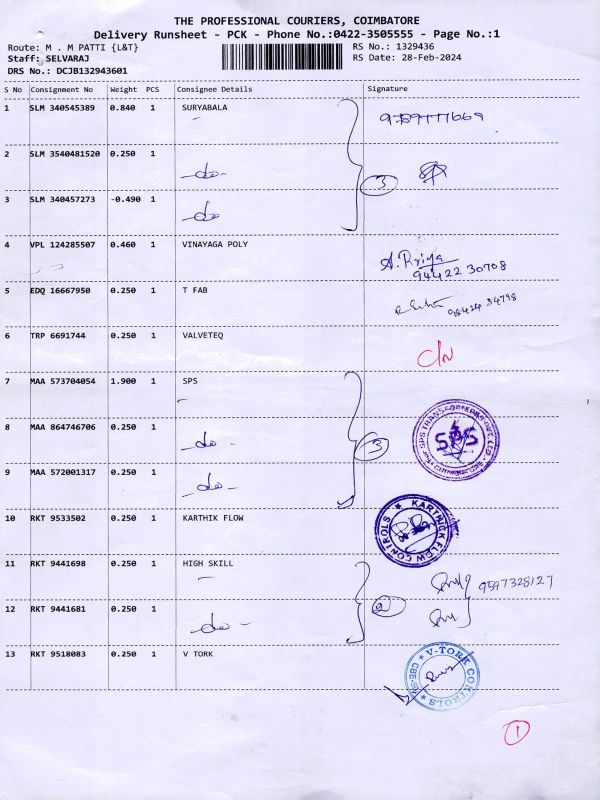 THE PROFESSIONAL COURIERS, COIMBATORE
Delivery Runsheet - PCK - Phone No.:0422-3505555 - Page No.:1
Route: M . M PATTI {L&T} RS No.: 1329436
Staff: SELVARAJ RS Date: 28-Feb-2024
DRS No.: DCJB132943601
S No Consignment No Weight PCS Consignee Details Signature
1 SLM 340545389 0.840 1 SURYABALA
2 SLM 3540481520 0.250 1 -do-
3
3 SLM 340457273 -0.490 1 -do
4 VPL 124285507 0.460 1 VINAYAGA POLY A. Priya
94422 30708
5 EDQ 16667950 0.250 1 T FAB 98424 34798
6 TRP 6691744 0.250 1 VALVETEQ C/N
7 MAA 573704054 1.900 1 SPS
8 MAA 864746706 0.250 1 -do- 3 SPS
9 MAA 572001317 0.250 1 -do-
10 RKT 9533502 0.250 1 KARTHIK FLOW KARTHICK FLOW CONTROLS
11 RKT 9441698 0.250 1 HIGH SKILL 9597328127
2
12 RKT 9441681 0.250 1 -do-
13 RKT 9518083 0.250 1 V TORK V-TORK CONTROLS
1